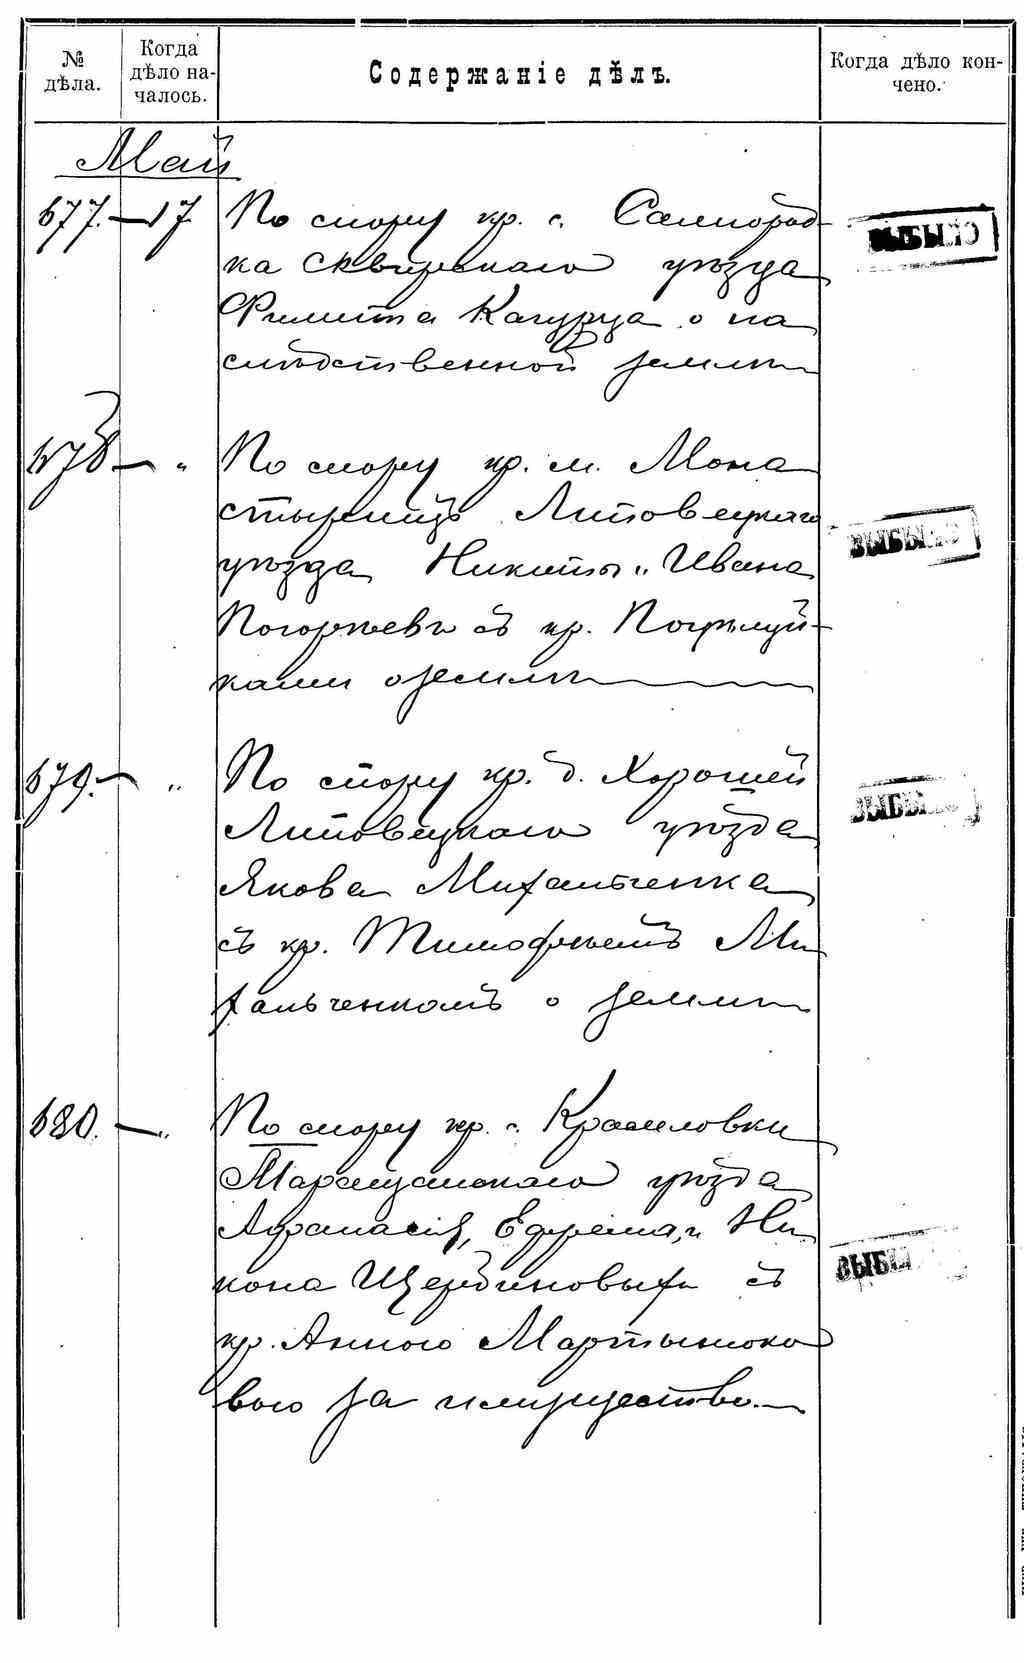 № дѣла.
Когда дѣло на-
чалось.
Содержаніе дѣлъ.
Когда дѣло кон-
чено.
Май
677. — 17
По спору кр. с. Самгород-
ка Сквирскаго уѣзда
Филиппа о на
слѣдственной землѣ
ВЫБЫЛО
678 — "
По спору кр. м. Мона
стырищъ Липовецкаго
уѣзда Никиты и Ивана
съ кр.
ками о землѣ
ВЫБЫЛО
679. — "
По спору кр. д. Хорошей
Липовецкаго уѣзда
Якова Михальченка
съ кр. Тимофѣемъ Ми
хальченкомъ о землѣ
ВЫБЫЛО
680. — "
По спору кр. с.
Таращанскаго уѣзда
Афанасія, Ефрема, и Ни
кона Щербиновыхъ съ
кр. Анною Мартынюко
вою за имущество.
ВЫБЫ